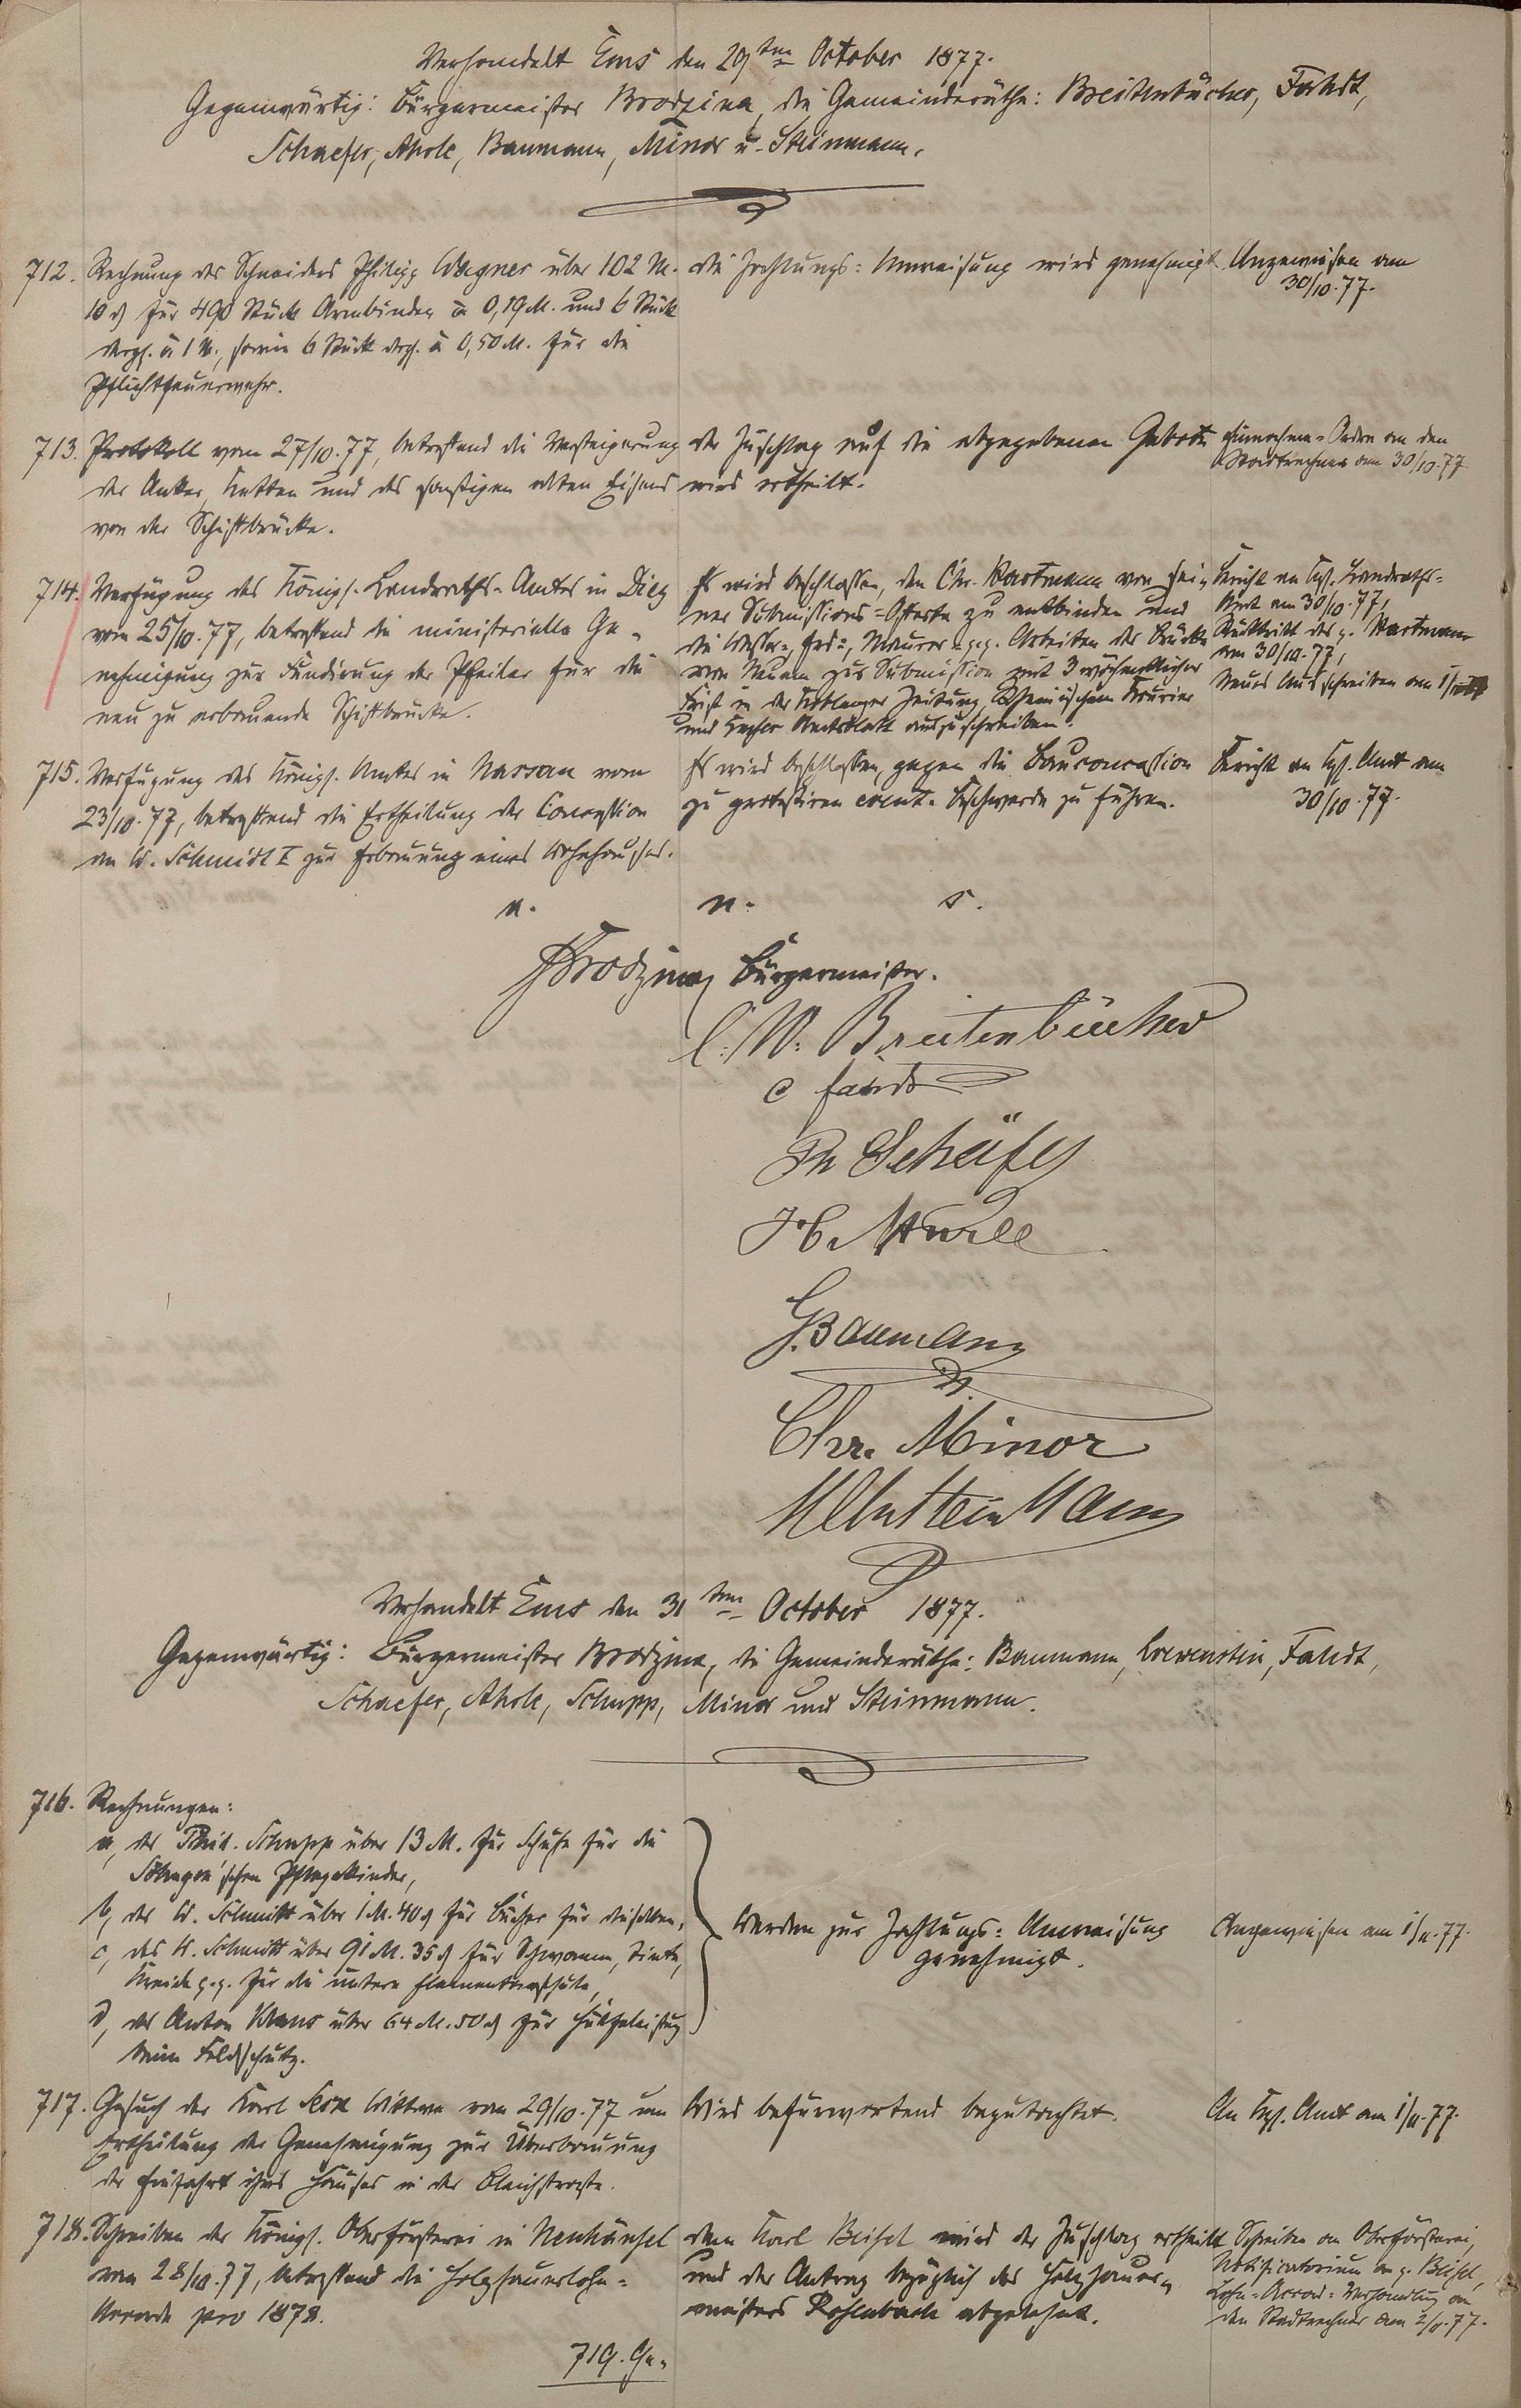 Verhandelt Ems den 29ten October 1877.
Gegenwärtig: Bürgermeister Brodzina, die Gemeinderäthe: Breitenbücher, Fahdt,
Schaefer, Ahrle, Baumann, Minor u. Steinmann.
712. Rechnung des Schneiders Philipp Wagner über 102 M.
10 ₰ für 490 Stück Armbinden à 0,19 M. und 6 Stück
dergl. à 1 M., sowie 6 Stück dergl. à 0,50 M. für die
Pflichtfeuerwehr.
die Zahlungs=Anweisung wird genehmigt
Angewiesen am
30/10.77.
713. Protokoll vom 27/10.77, betreffend die Versteigerung
der Anker, Ketten und des sonstigen alten Eisens
von der Schiffbrücke.
der Zuschlag auf die abgegebenen Gebote
wird ertheilt.
Einnahme-Ordre an den
Stadtrechner am 30/10.77.
714. Verfügung des Königl. Landraths-Amtes in Diez
vom 25/10.77, betreffend die ministerielle Ge-
nehmigung zur Fundirung der Pfeiler für die
neu zu erbauende Schiffbrücke.
Es wird beschlossen, den Chr. Hartmann von sei-
ner Submissions=Offerte zu entbinden und
die Wasser-, Erd-, Maurer- p.p. Arbeiten der Brücke
von Neuem zur Submission mit 3 wöchentlicher
Frist in der Koblenzer Zeitung, Rheinischem Kourier
und Amtsblatt auszuschreiben.
Bericht an Kgl. Landraths-
Amt am 30/10.77,
Rücktritt des p. Hartmann
am 30/10.77,
Neues Ausschreiben am 1/11.77
715. Verfügung des Königl. Amtes in Nassau vom
23/10.77, betreffend die Ertheilung der Concession
an W. Schmidt I zur Erbauung eines Wohnhauses.
Es wird beschlossen, gegen die Bauconcession
zu protestiren event. Beschwerde zu führen.
Bericht an Kgl. Amt am
30/10.77.
Brodzina Bürgermeister.
C. W. Breitenbücher
C Fahdt
Ph Schäfer
H. Ahrle
G. Baumann
Chr. Minor
Steinmann
Verhandelt Ems den 31ten October 1877.
Gegenwärtig: Bürgermeister Brodzina, die Gemeinderäthe: Baumann, Loewenstein, Fahdt,
Schaefer, Ahrle, Schupp, Minor und Steinmann.
716. Rechnungen:
a, der Phil. Schupp über 13 M. für Schuhe für die
Pflegekinder,
b, des W. Schmitt über 1 M. 40 ₰ für Bücher für dieselben,
c, des W. Schmitt über 91 M. 35 ₰ für Schwamm, Tinte,
Kreide p.p. für die untere Elementarschule,
d, des Anton Klaus über 64 M. 50 ₰ für Hülfeleistung
beim Feldschutz.
Werden zur Zahlungs=Anweisung
genehmigt.
Angewiesen am 1/11.77.
717. Gesuch der Karl Wittwe vom 29/10.77 um
Ertheilung der Genehmigung zur Überbauung
der Einfahrt ihres Hauses in der Bleichstraße.
Wird befürwortend begutachtet.
An Kgl. Amt am 1/11.77.
718. Schreiben der Königl. Oberförsterei in Neuhäusel
vom 28/10.77, betreffend die Holzhauerlohn=
Accorde pro 1878.
dem Karl Beisel wird der Zuschlag ertheilt
und der Antrag bezüglich des Holzhauer-
meisters Rosenbach abgelehnt.
Schreiben an Oberförsterei,
Notificatorium an p. Beisel,
Lohn-Accord-Verhandlung an
den Stadtrechner am 2/11.77.
719. Ge-